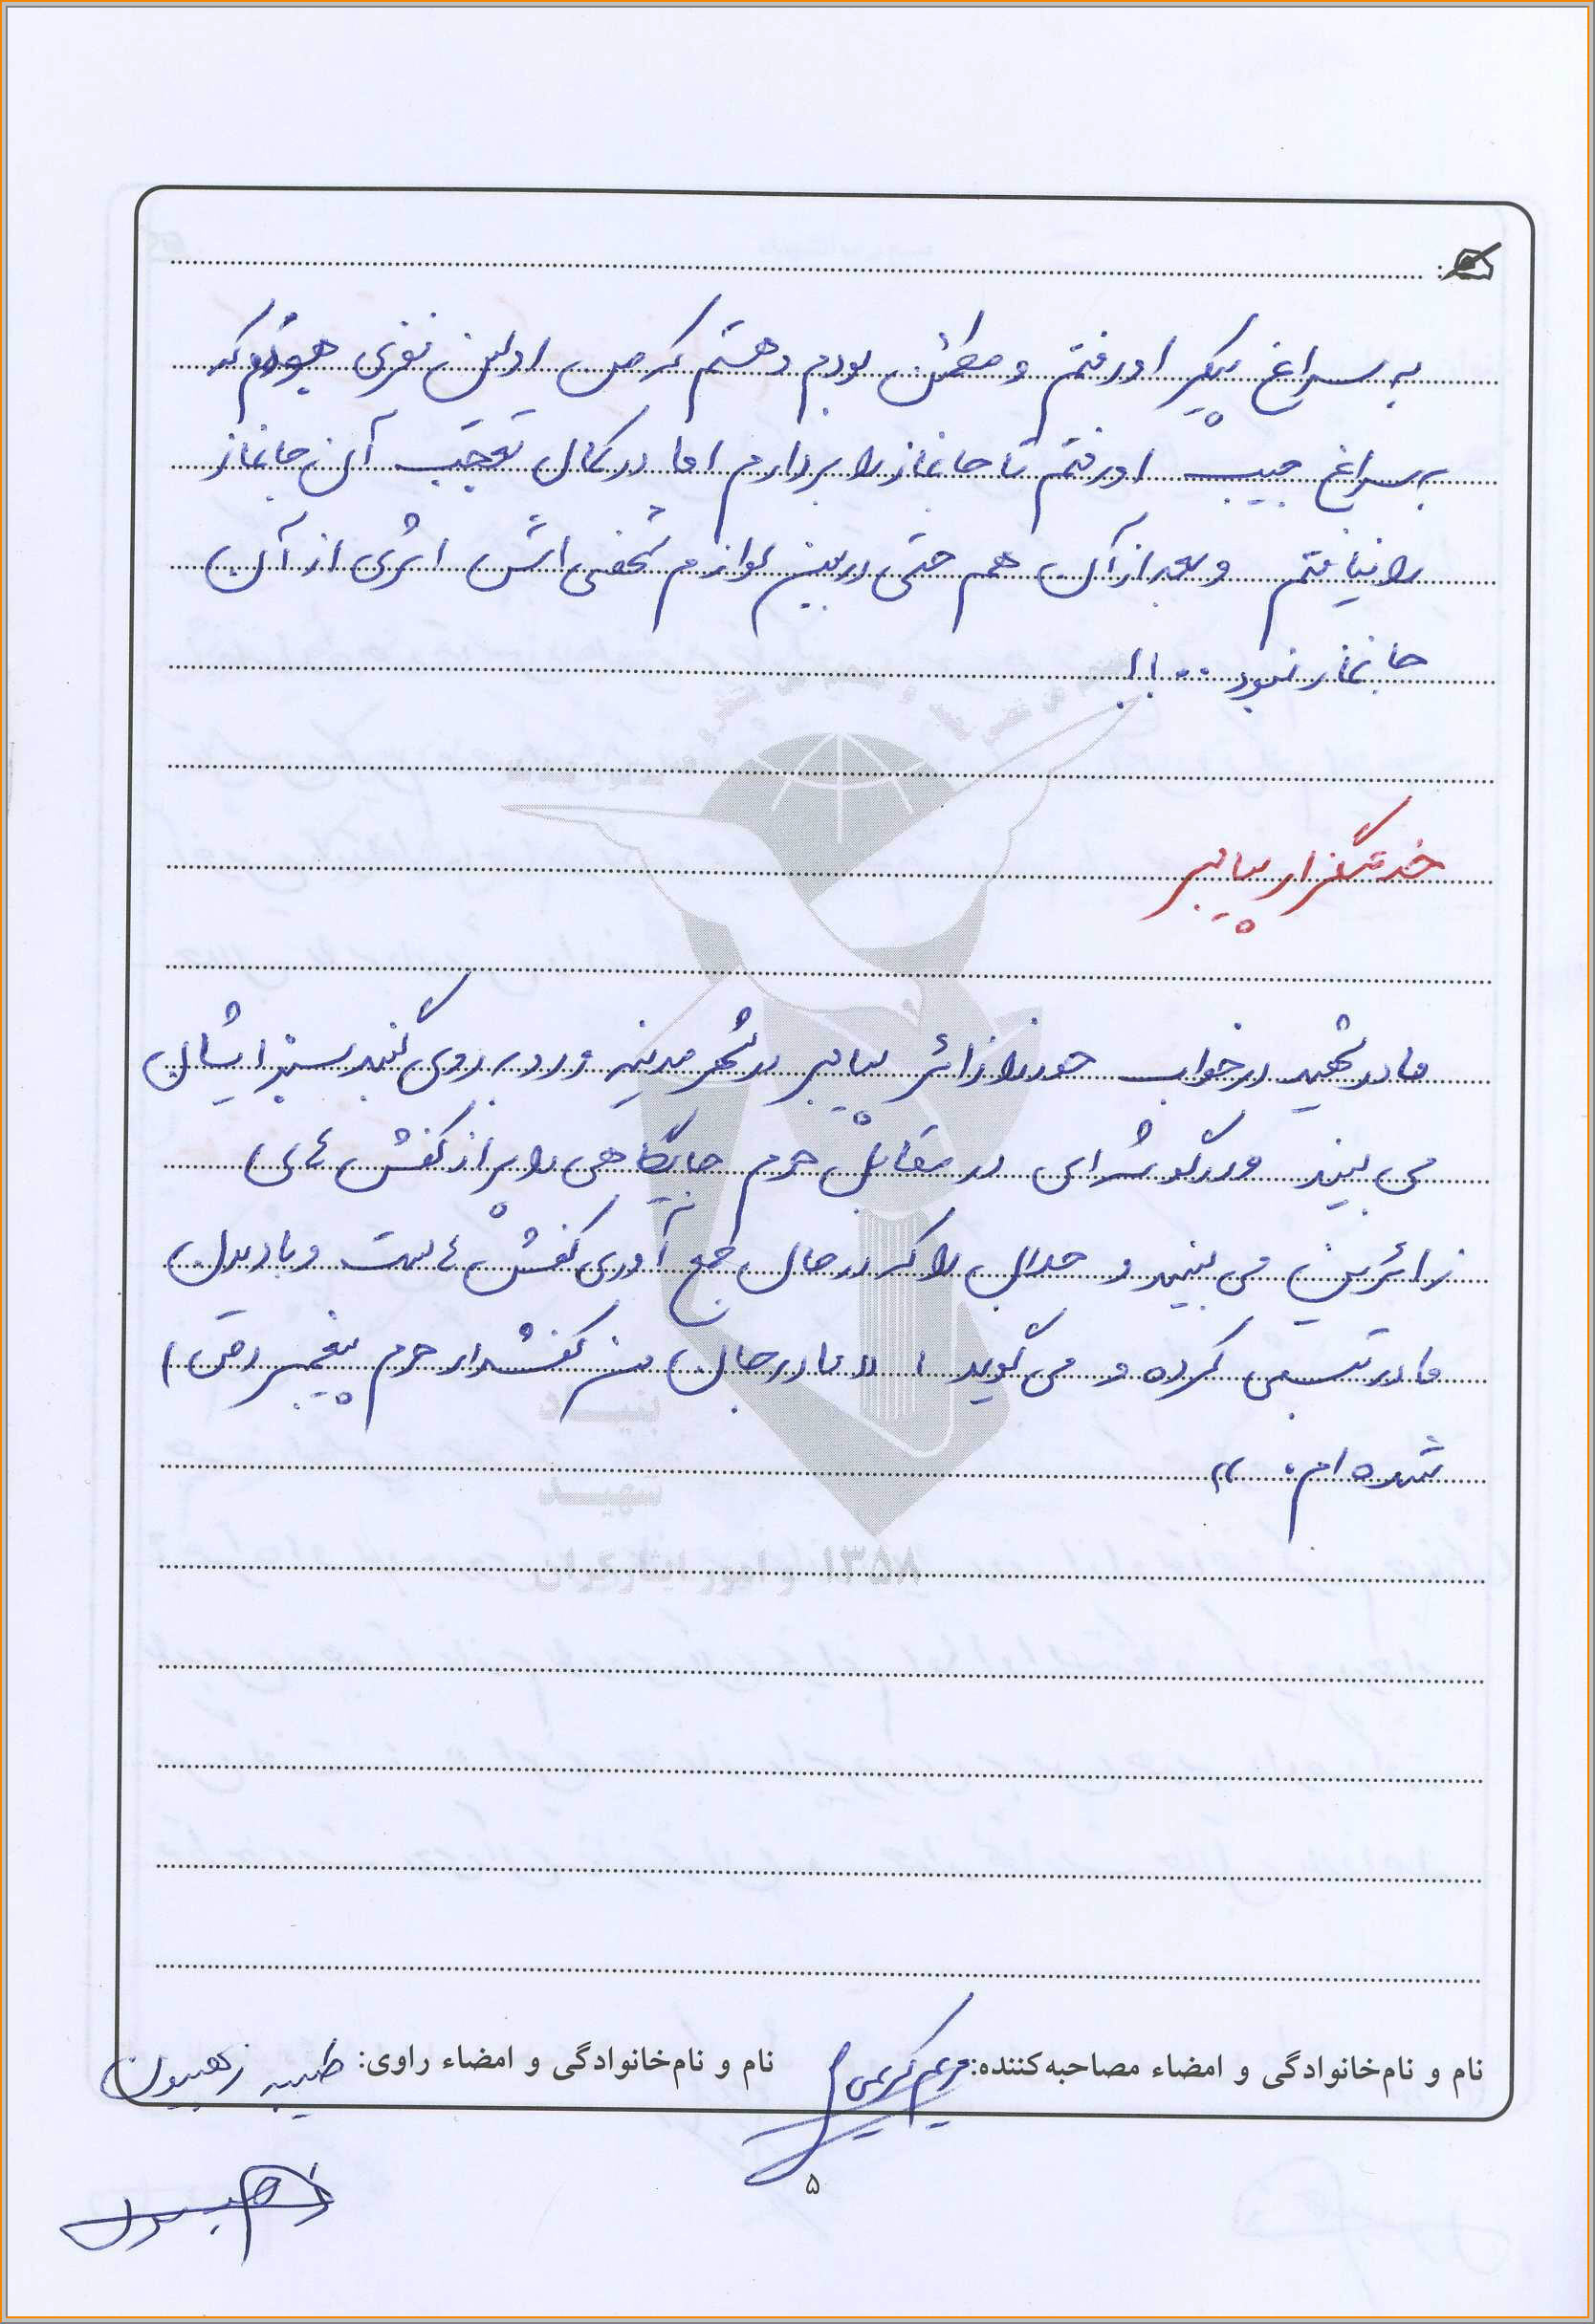 به سراغ پیکر او رفتم و مطمئن بودم و هستم که من اولین نفری بودم که
به سراغ جیب او رفتم تا جانماز را بردارم اما در کمال تعجب آن جانماز
را نیافتم و بعد از آن هم حتی در بین لوازم شخصی اش اثری از آن
جانماز نبود ..!!
خدمتگزار پیامبر
مادر شهید در خواب خود را زائر پیامبر در شهر مدینه و رو به روی گنبد سبز ایشان
می بیند و در گوشه ای در مقابل حرم جایگاهی را پر از کفش های
زائرین می بیند و جلال را که در حال جمع آوری کفش هاست و با دیدن
مادر تبسمی کرده و می گوید ، «مادر جان من کفشدار حرم پیغمبر (ص)
شده ام. »
بنیاد
شهید
و امور ایثارگران ۱۳۵۸
نام و نام‌خانوادگی و امضاء مصاحبه‌کننده: مریم کریمی نام و نام‌خانوادگی و امضاء راوی: طیبه ذهبیون
۵